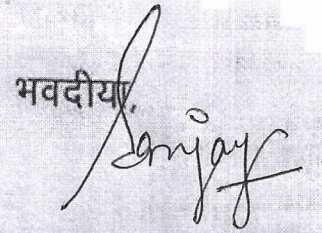 भवदीया,
Sanjay